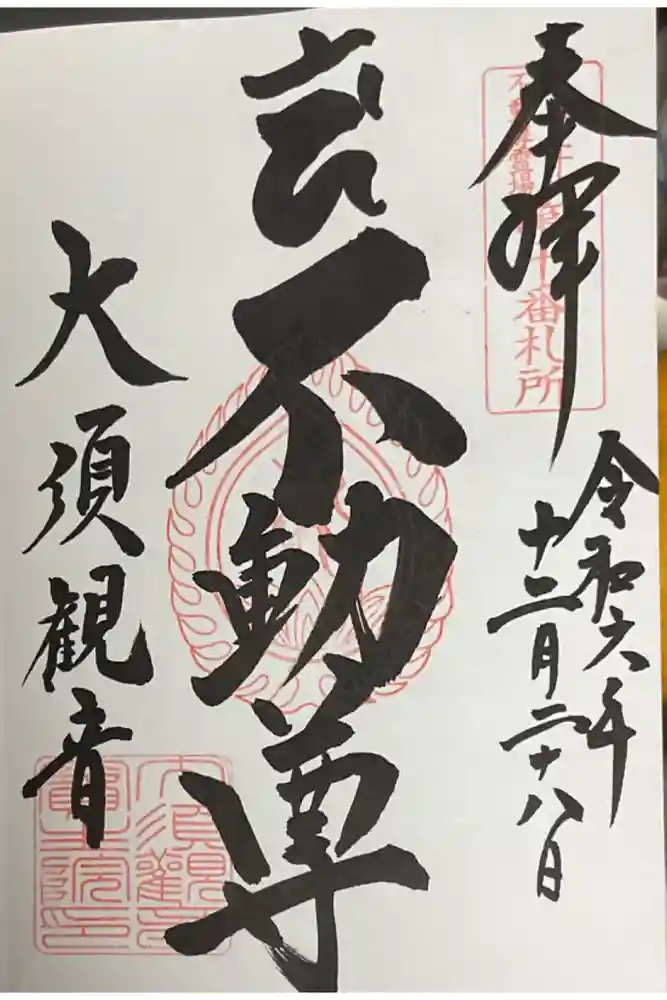 奉拝
不動尊霊場
番札所
令和六年
十二月二十八日
不動尊
大須観音
大須觀音
寶生院印